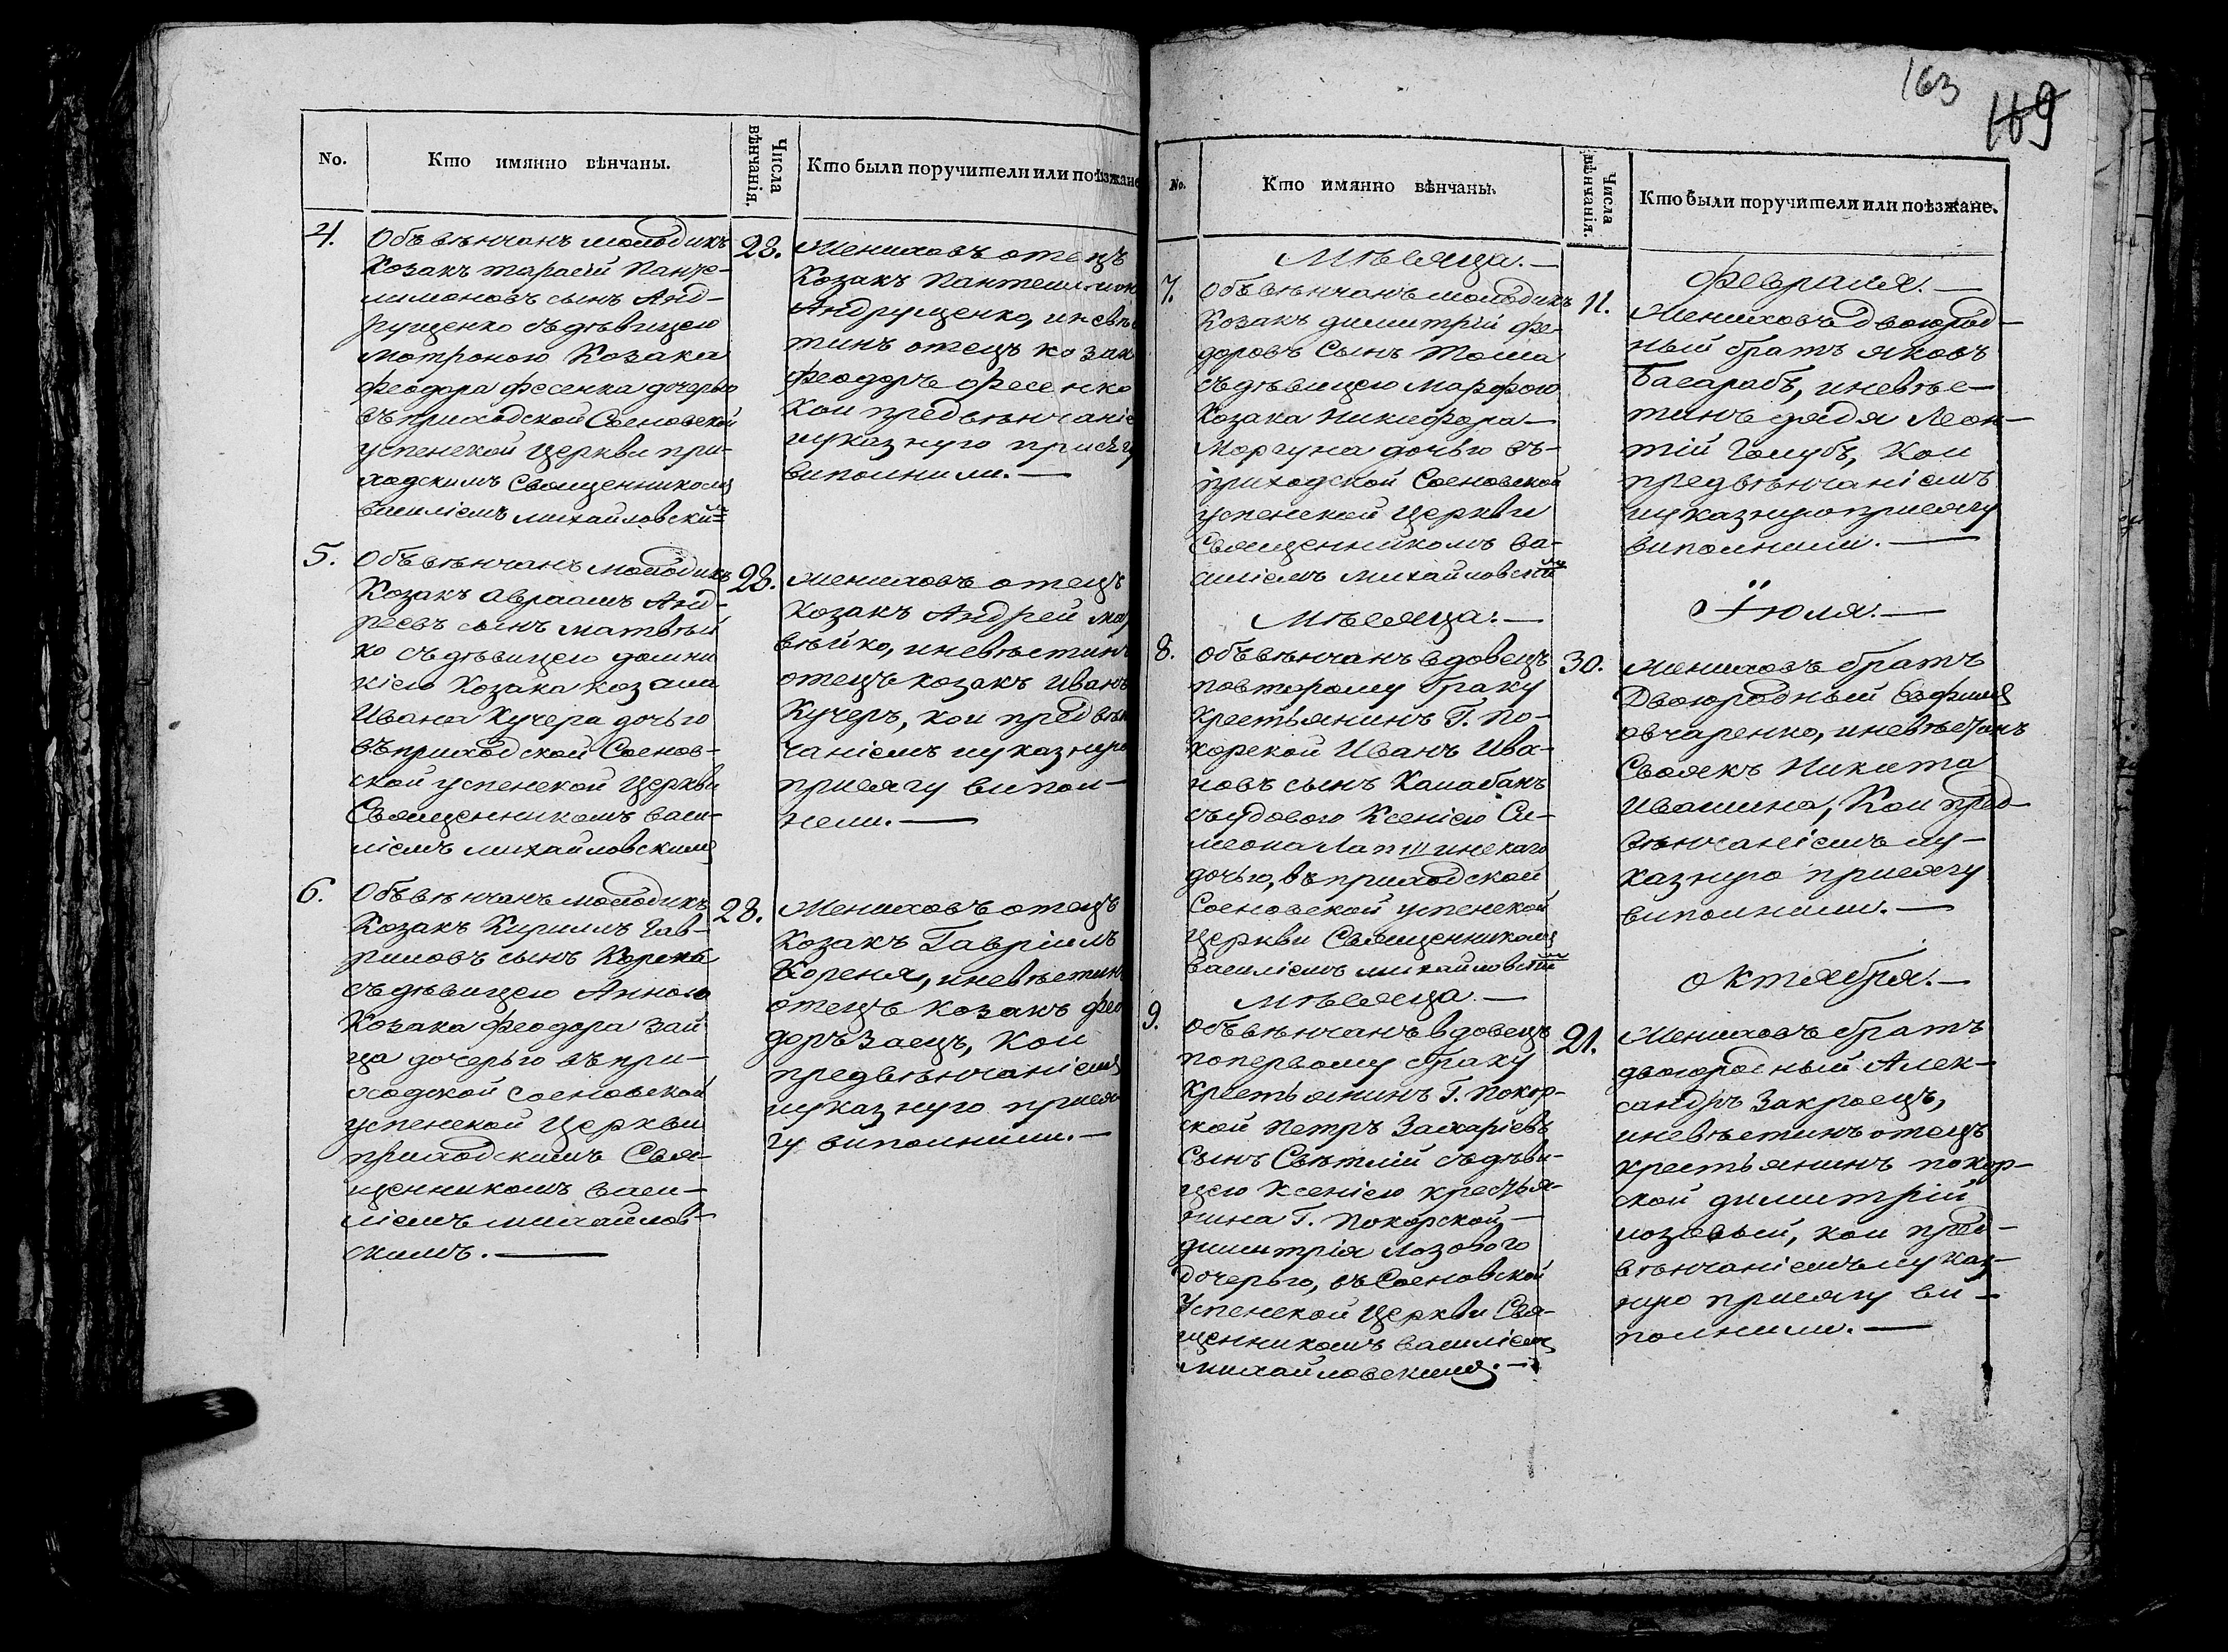 No.
Кто имянно вѣнчаны.
Числа вѣнчанія.
Кто были поручители или поѣзжане
4.
Объвѣнчанъ молодикъ
Козакъ тарасій Панте-
лимоновъ сынъ Анд-
рущенко съ дѣвицею
мотроною Козака
Феодора Фесенка дочерью
въ приходской Сосновской
успенской Церкви при-
ходскимъ Священникомъ
василіемъ михайловским
28.
Жениховъ отецъ
Козакъ Пантелимон
Андрущенко, и невѣс
тинъ отецъ козак
Феодоръ Фесенко
Кои предвѣнчаніе
мъ указную присягу
виполнили.—
5.
Объвѣнчанъ молодикъ
Козакъ авраамъ Анд-
реевъ сынъ матвѣй
ко съ дѣвицею домни
кіею Козака козака
Ивана Кучера дочью
въ приходской Соснов-
ской успенской Церкви
Священникомъ васи-
ліемъ михайловским
28.
Жениховъ отецъ
Козакъ Андрей мат
вѣйко, и невѣстинъ
отецъ козакъ Иванъ
Кучеръ, кои предвѣн
чаніемъ указную
присягу випол—
нели.—
6.
Объвѣнчанъ молодикъ
Козакъ Кирилъ Гав-
риловъ сынъ Кореня
съ дѣвицею Анною
Козака Феодора Зай
ца дочерью въ при-
ходской сосновской
успенской Церкви
приходскимъ Свя-
щенникомъ васи-
ліемъ михайлов-
скимъ.—
28.
Жениховъ отецъ
Козакъ Гавріилъ
Кореня, и невѣстин
отецъ козакъ фео
доръ Заецъ, Кои
предвѣнчаніемъ
указную прися
гу виполнили.—
163
169
No.
Кто имянно вѣнчаны.
Числа вѣнчанія.
Кто были поручители или поѣзжане.
Мѣсяца.—
февраля.—
7.
Объвѣнчанъ молодикъ
Козакъ димитрій Фе-
доровъ Сынъ Тоша
съ дѣвицею Марфою
Козака Никифора—
Моргуна дочью въ-
приходской Сосновской
успенской Церкви
Священникомъ ва-
силіемъ михайловским
11.
Жениховъ двоюрод-
ный братъ яковъ
Басарабъ, и невѣс-
тинъ дядя Леон-
тій Голубъ, Кои
предвѣнчаніемъ
указную присягу
виполнили.—
Мѣсяца:—
Іюля.—
8.
объвѣнчанъ вдовецъ
повторому браку
Крестьянинъ Г. По-
корской Иванъ Ива-
новъ сынъ Калабанъ
съ удовою Ксеніею Си-
меона Лапшинскаго
дочью, въ приходской
Сосновской успенской
Церкви Священникомъ
василіемъ михайловским
30.
Жениховъ братъ
Двоюродный Евфимъ
овчаренко, и невѣстинъ
Своякъ Никита
Ивашина, Кои пред-
вѣнчаніемъ у-
казную присягу
виполнили.—
мѣсяца.—
октября.—
9.
Объвѣнчанъ вдовецъ
попервому браку
Крестьянинъ Г. Покор-
ской Петръ Захаріевъ
Сынъ Свѣтлій съ дѣви-
цею Ксеніею крестья-
нина Г. Покорской—
димитрія Лозового
дочерью, въ Сосновской
Успенской Церкви Свя-
щенникомъ василіем
михайловским.—
21.
Жениховъ братъ
двоюродный Алек-
сандръ Закроецъ,
и невѣстинъ отецъ
крестьянинъ покор-
ской димитрій
лозовый, кои пред-
вѣнчаніемъ указ-
ную присягу ви-
полнили.—